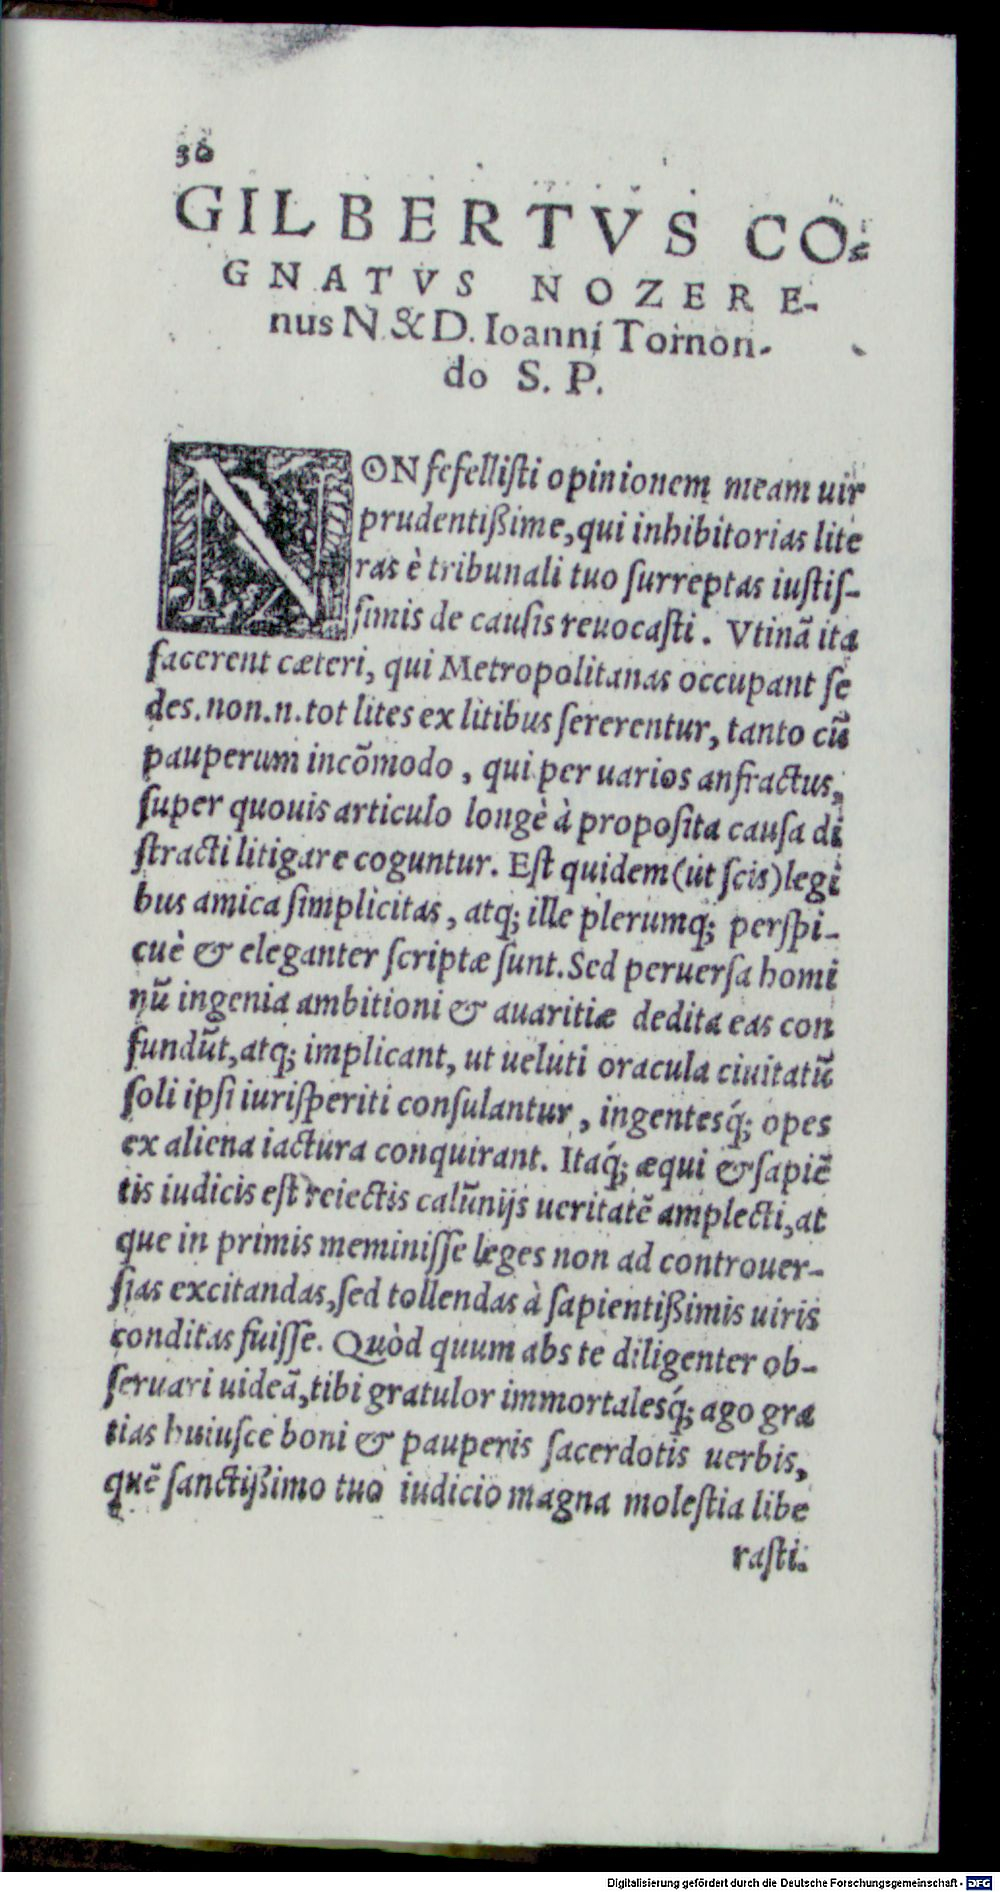 30
GILBERTVS CO-
GNATVS NOZERE-
nus N. & D. Ioanni Tornon-
do S. P.
NON fefellisti opinionem meam uir
prudentißime, qui inhibitorias lite
ras è tribunali tuo surreptas iustis-
simis de causis reuocasti. Vtinā ita
facerent cæteri, qui Metropolitanas occupant se
des. non.n. tot lites ex litibus sererentur, tanto cū
pauperum incōmodo, qui per uarios anfractus,
super quouis articulo longè à proposita causa di
stracti litigare coguntur. Est quidem (ut scis) legi
bus amica simplicitas, atq; ille plerumq; perspi-
cuè & eleganter scriptæ sunt. Sed peruersa homi
nū ingenia ambitioni & auaritiæ dedita eas con
fundūt, atq; implicant, ut ueluti oracula ciuitatū
soli ipsi iurisperiti consulantur, ingentesq́; opes
ex aliena iactura conquirant. Itaq́; æqui & sapiē
tis iudicis est reiectis calūnijs ueritatē amplecti, at
que in primis meminisse leges non ad controuer-
sias excitandas, sed tollendas à sapientißimis uiris
conditas fuisse. Quòd quum abs te diligenter ob-
seruari uideā, tibi gratulor immortalesq́; ago gra
tias huiusce boni & pauperis sacerdotis uerbis,
quē sanctißimo tuo iudicio magna molestia libe
rasti.
Digitalisierung gefördert durch die Deutsche Forschungsgemeinschaft - DFG